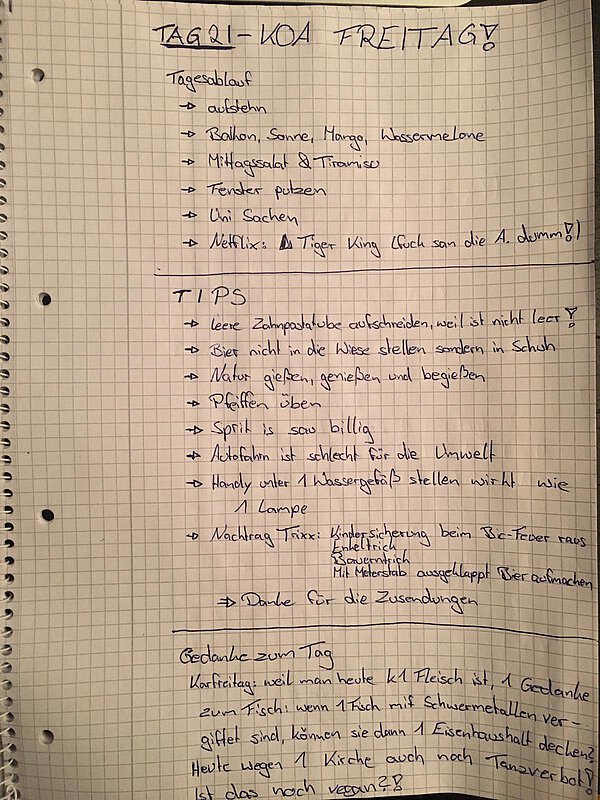 TAG 21 - KOA FREITAG!
Tagesablauf
→ aufstehn
→ Balkon, Sonne, Mango, Wassermelone
→ Mittagssalat & Tiramisu
→ Fenster putzen
→ Uni Sachen
→ Netflix: Tiger King (fuck san die A. dumm!)
TIPS
→ leere Zahnpastatube aufschneiden, weil ist nicht leer!
→ Bier nicht in die Wiese stellen sondern in Schuh
→ Natur gießen, genießen und begießen
→ Pfeiffen üben
→ Sprit is sau billig
→ Autofahrn ist schlecht für die Umwelt
→ Handy unter 1 Wassergefäß stellen wirkt wie
1 Lampe
→ Nachtrag Trixx: Kindersicherung beim Bic-Feuer raus
Enkeltrich
Bauerntrich
Mit Meterstab ausgeklappt Bier aufmachen
⇒ Danke für die Zusendungen
Gedanke zum Tag
Karfreitag: weil man heute k1 Fleisch ist, 1 Gedanke
zum Fisch: wenn 1 Fisch mit Schwermetallen ver-
giftet sind, können sie dann 1 Eisenhaushalt decken?
Heute wegen 1 Kirche auch noch Tanzverbot!
Ist das noch vegan?!